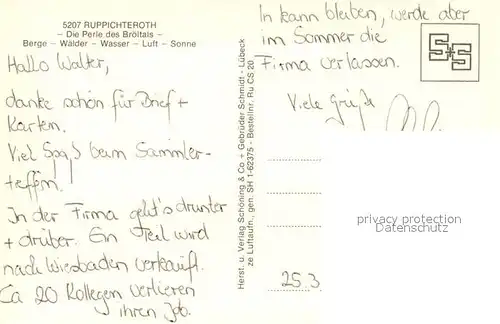 5207 RUPPICHTEROTH
– Die Perle des Bröltals –
Berge – Wälder – Wasser – Luft – Sonne
Hallo Walter,
danke schön für Brief +
Karten.
Viel Spaß beim Sammler-
treffen!
In der Firma geht's drunter
+ drüber. Ein Teil wird
nach Wiesbaden verkauft.
Ca 20 Kollegen verlieren
ihren Job.
Herst. u. Verlag Schöning & Co + Gebrüder Schmidt - Lübeck
ze Luftaufn., gen. SH 1-62375 - Bestellnr. Ru CS 20
Ich kann bleiben, werde aber
im Sommer die
Firma verlassen.
Viele Grüße
S+S
privacy protection
Datenschutz
25.3